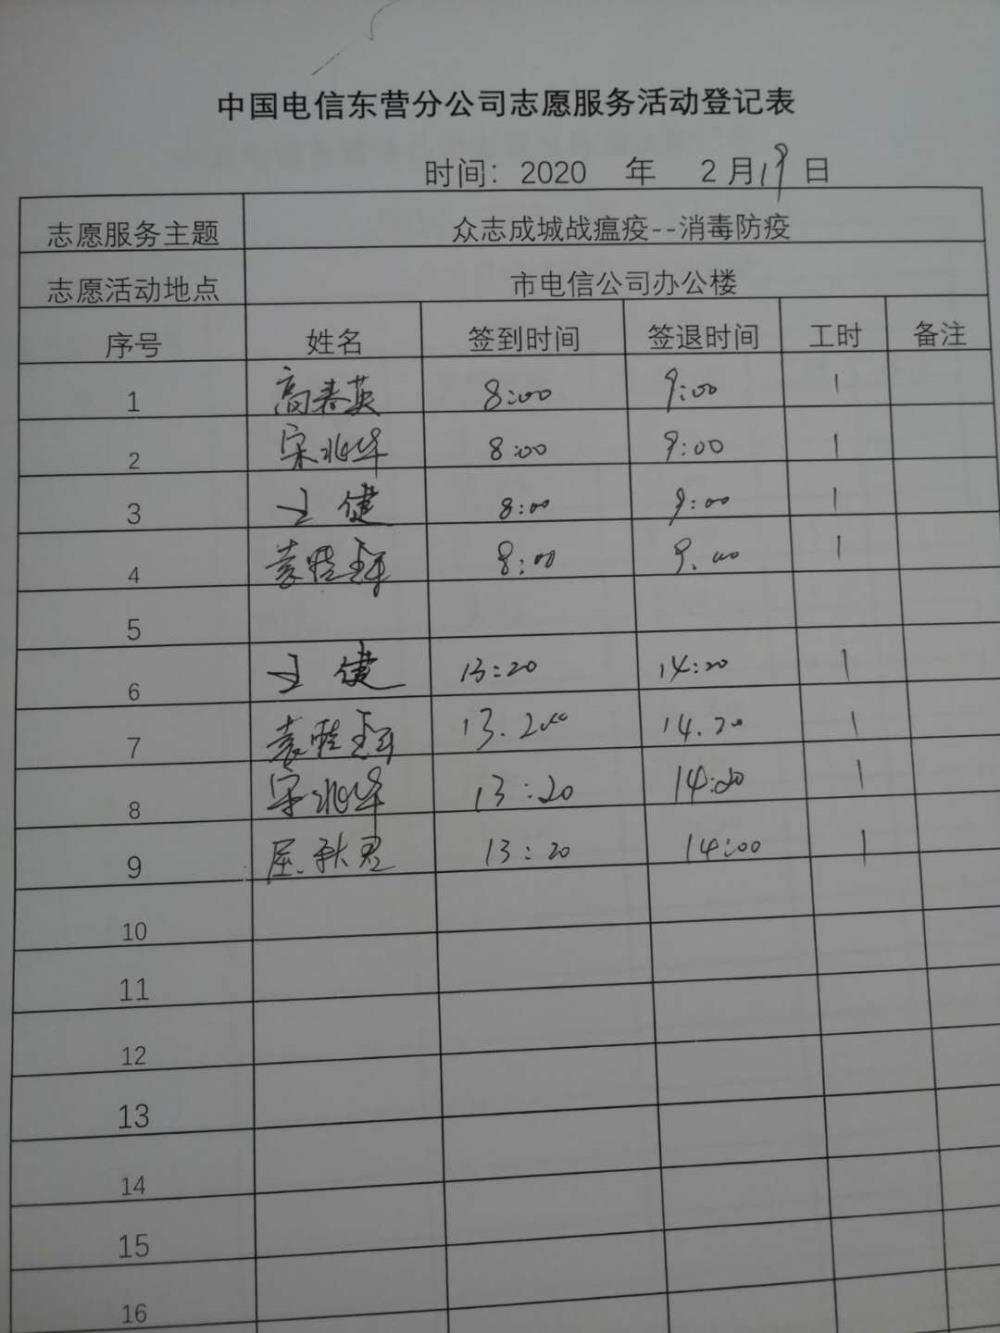 中国电信东营分公司志愿服务活动登记表
时间：2020 年 2月19日
志愿服务主题 众志成城战瘟疫--消毒防疫
志愿活动地点 市电信公司办公楼
序号 姓名 签到时间 签退时间 工时 备注
1 高春英 8:00 9:00 1
2 宋兆华 8:00 9:00 1
3 王健 8:00 9:00 1
4 袁晓 8:00 9.00 1
5
6 王健 13:20 14:20 1
7 袁晓 13.20 14.20 1
8 宋兆华 13:20 14:20 1
9 屈秋君 13:20 14:00 1
10
11
12
13
14
15
16